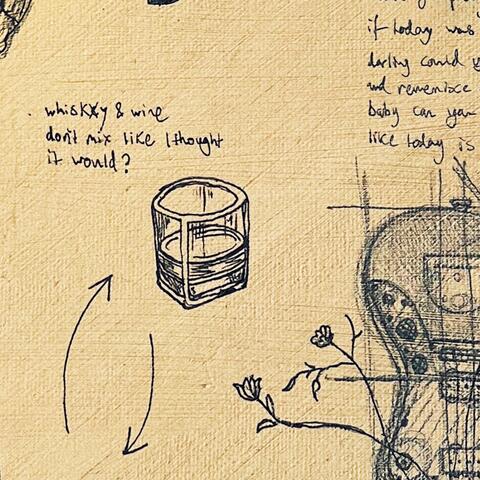 whiskxy & wine
don't mix like I thought
it would?
if today was
darling could y
and reminixce
baby can you
like today is